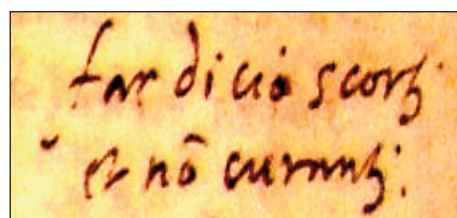 far di ciò scortj
et nõ curantj: